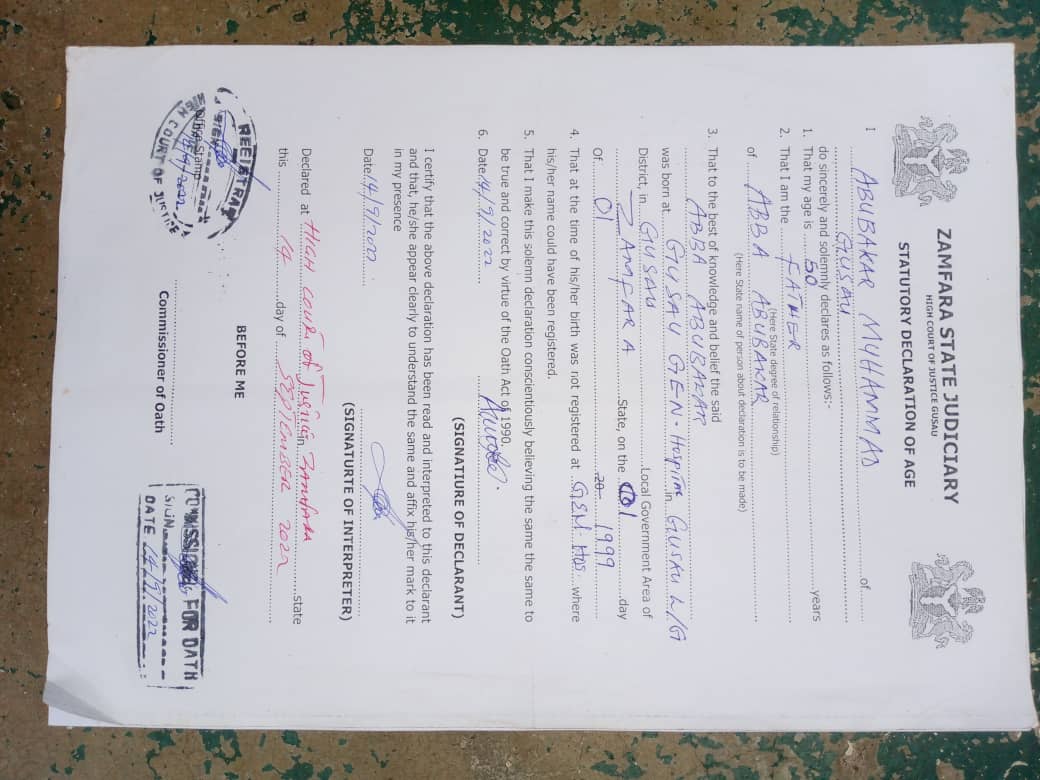 ZAMFARA STATE JUDICIARY
HIGH COURT OF JUSTICE GUSAU
STATUTORY DECLARATION OF AGE
I ABUBAKAR MUHAMMAD of
GUSAU
do sincerely and solemnly declares as follows:-
1. That my age is 50 years
2. That I am the FATHER
(Here State degree of relationship)
of ABBA ABUBAKAR
(Here State name of person about declaration is to be made)
3. That to the best of knowledge and belief the said
ABBA ABUBAKAR
was born at GUSAU GEN. HOSPITAL in GUSAU L/G
District, in GUSAU Local Government Area of
ZAMFARA State, on the 01 day
Of 01 20 1999
4. That at the time of his/her birth was not registered at GEN. HOS. where
his/her name could have been registered.
5. That I make this solemn declaration conscientiously believing the same the same to
be true and correct by virtue of the Oath Act of 1990.
6. Date 14/9/2022
(SIGNATIURE OF DECLARANT)
I certify that the above declaration has been read and interpreted to this declarant
and that, he/she appear clearly to understand the same and affix his/her mark to it
in my presence
Date 14/9/2022
(SIGNATURTE OF INTERPRETER)
Declared at HIGH COURT of Justice in ZAMFARA state
this 14 day of SEPTEMBER 2022
BEFORE ME
REGISTRAR
SIGN
Office Stamp
HIGH COURT OF JUSTICE
Commissioner of Oath
COMMISSIONER FOR OATH
SIGN
DATE 14/9/2022